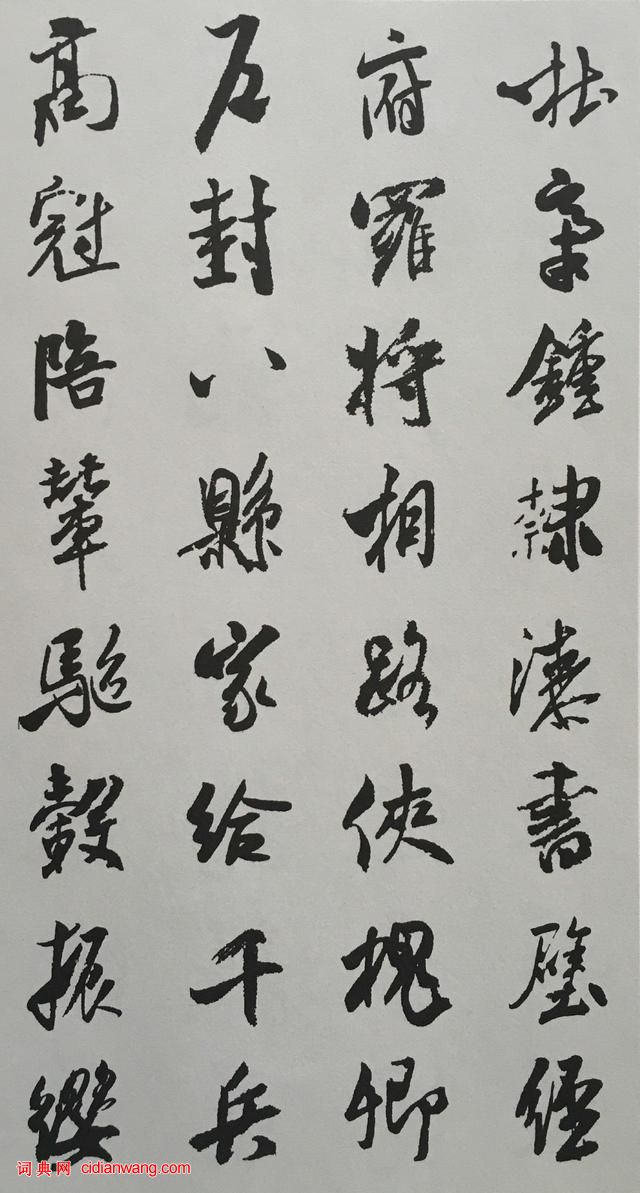 杜槀鍾隸漆書壁經
府羅將相路俠槐卿
戶封八縣家給千兵
高冠陪輦驅轂振纓
词典网 cidianwang.com